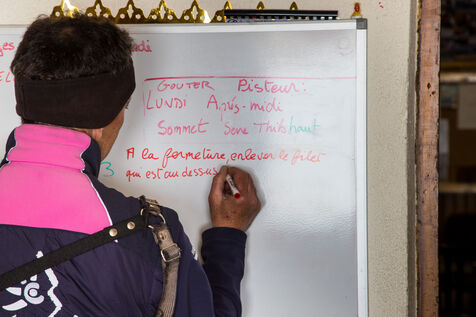 di
GOUTER Pisteur:
LUNDI Après-midi
Sommet Serre Thibhaut
A la fermeture, enlever le filet
3 qui est au dessus